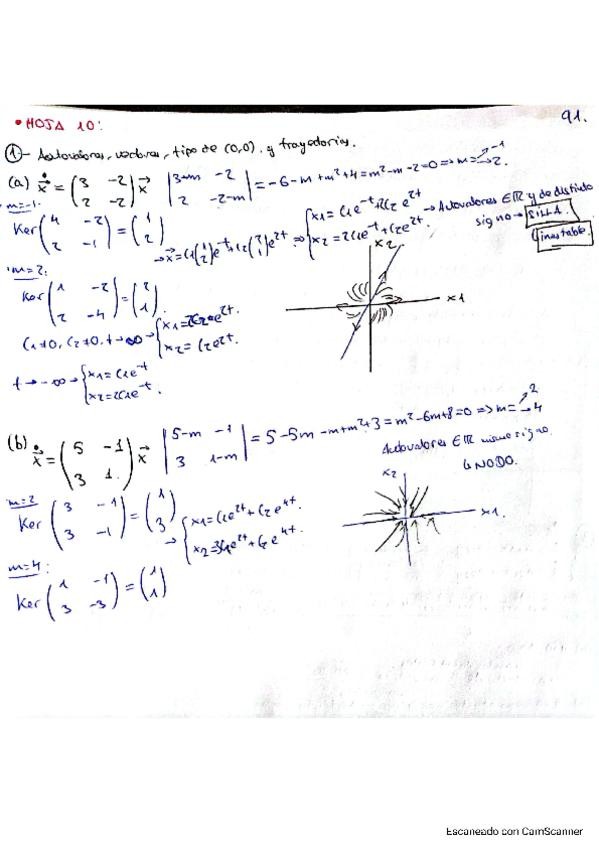 91.
• HOJA 10:
① - Autovalores, vectores, tipo de (0,0) y trayectorias.
(a) ẋ = (3 -2; 2 -2) x |3-m -2; 2 -2-m| = -6-m+m²+4 = m²-m-2=0 => m= -1, 2.
m=-1:
Ker (4 -2; 2 -1) = (1; 2)
→ x = C1 (1; 2) e^-t + C2 (2; 1) e^2t => { x1 = C1e^-t + 2C2 e^2t; x2 = 2C1e^-t + C2e^2t. → Autovalores ∈ ℝ y de distinto
signo → SILLA.
inestable.
m=2:
Ker (1 -2; 2 -4) = (2; 1)
C1≠0, C2≠0, t → ∞ → { x1 = 2C2e^2t; x2 = C2e^2t.
t → -∞ → { x1 = C1e^-t; x2 = 2C1e^-t.
x2
x1
(b) ẋ = (5 -1; 3 1) x |5-m -1; 3 1-m| = 5-5m-m+m²+3 = m²-6m+8=0 => m= 2, 4
Autovalores ∈ ℝ mismo signo
↳ NODO.
m=2
Ker (3 -1; 3 -1) = (1; 3)
→ { x1 = C1e^2t + C2e^4t; x2 = 3C1e^2t + C2e^4t.
m=4:
Ker (1 -1; 3 -3) = (1; 1)
x2
x1.
Escaneado con CamScanner